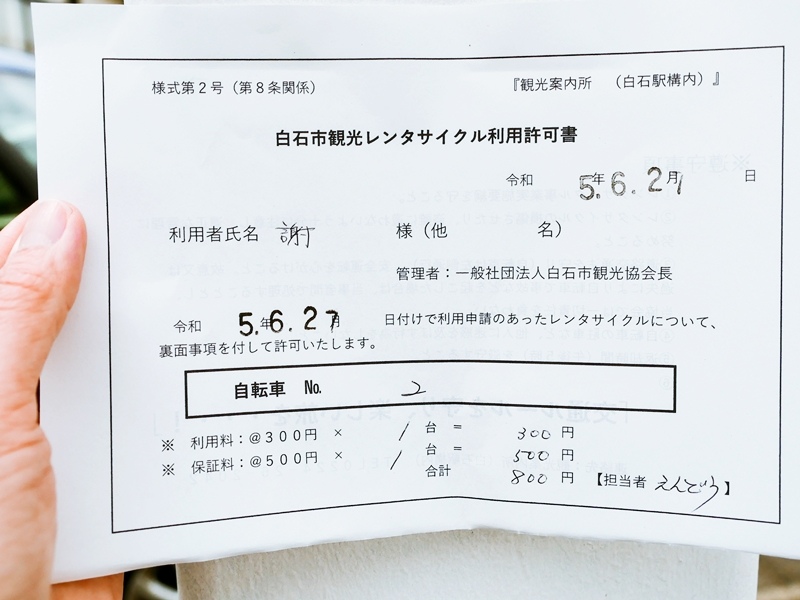 様式第２号（第８条関係）
『観光案内所　（白石駅構内）』
白石市観光レンタサイクル利用許可書
令和　5.年6.2月7　日
利用者氏名　謝　様（他　名）
管理者：一般社団法人白石市観光協会長
令和　5.年6.27月　日付けで利用申請のあったレンタサイクルについて、
裏面事項を付して許可いたします。
自転車　No.　2
※　利用料：＠３００円　×　1　台　＝　300　円
※　保証料：＠５００円　×　1　台　＝　500　円
合計　800　円　【担当者　えんどう】